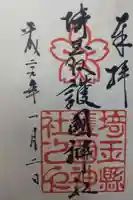 奉拝
埼玉縣護國神社
埼玉縣護國神社之印
平成二六年一月二日